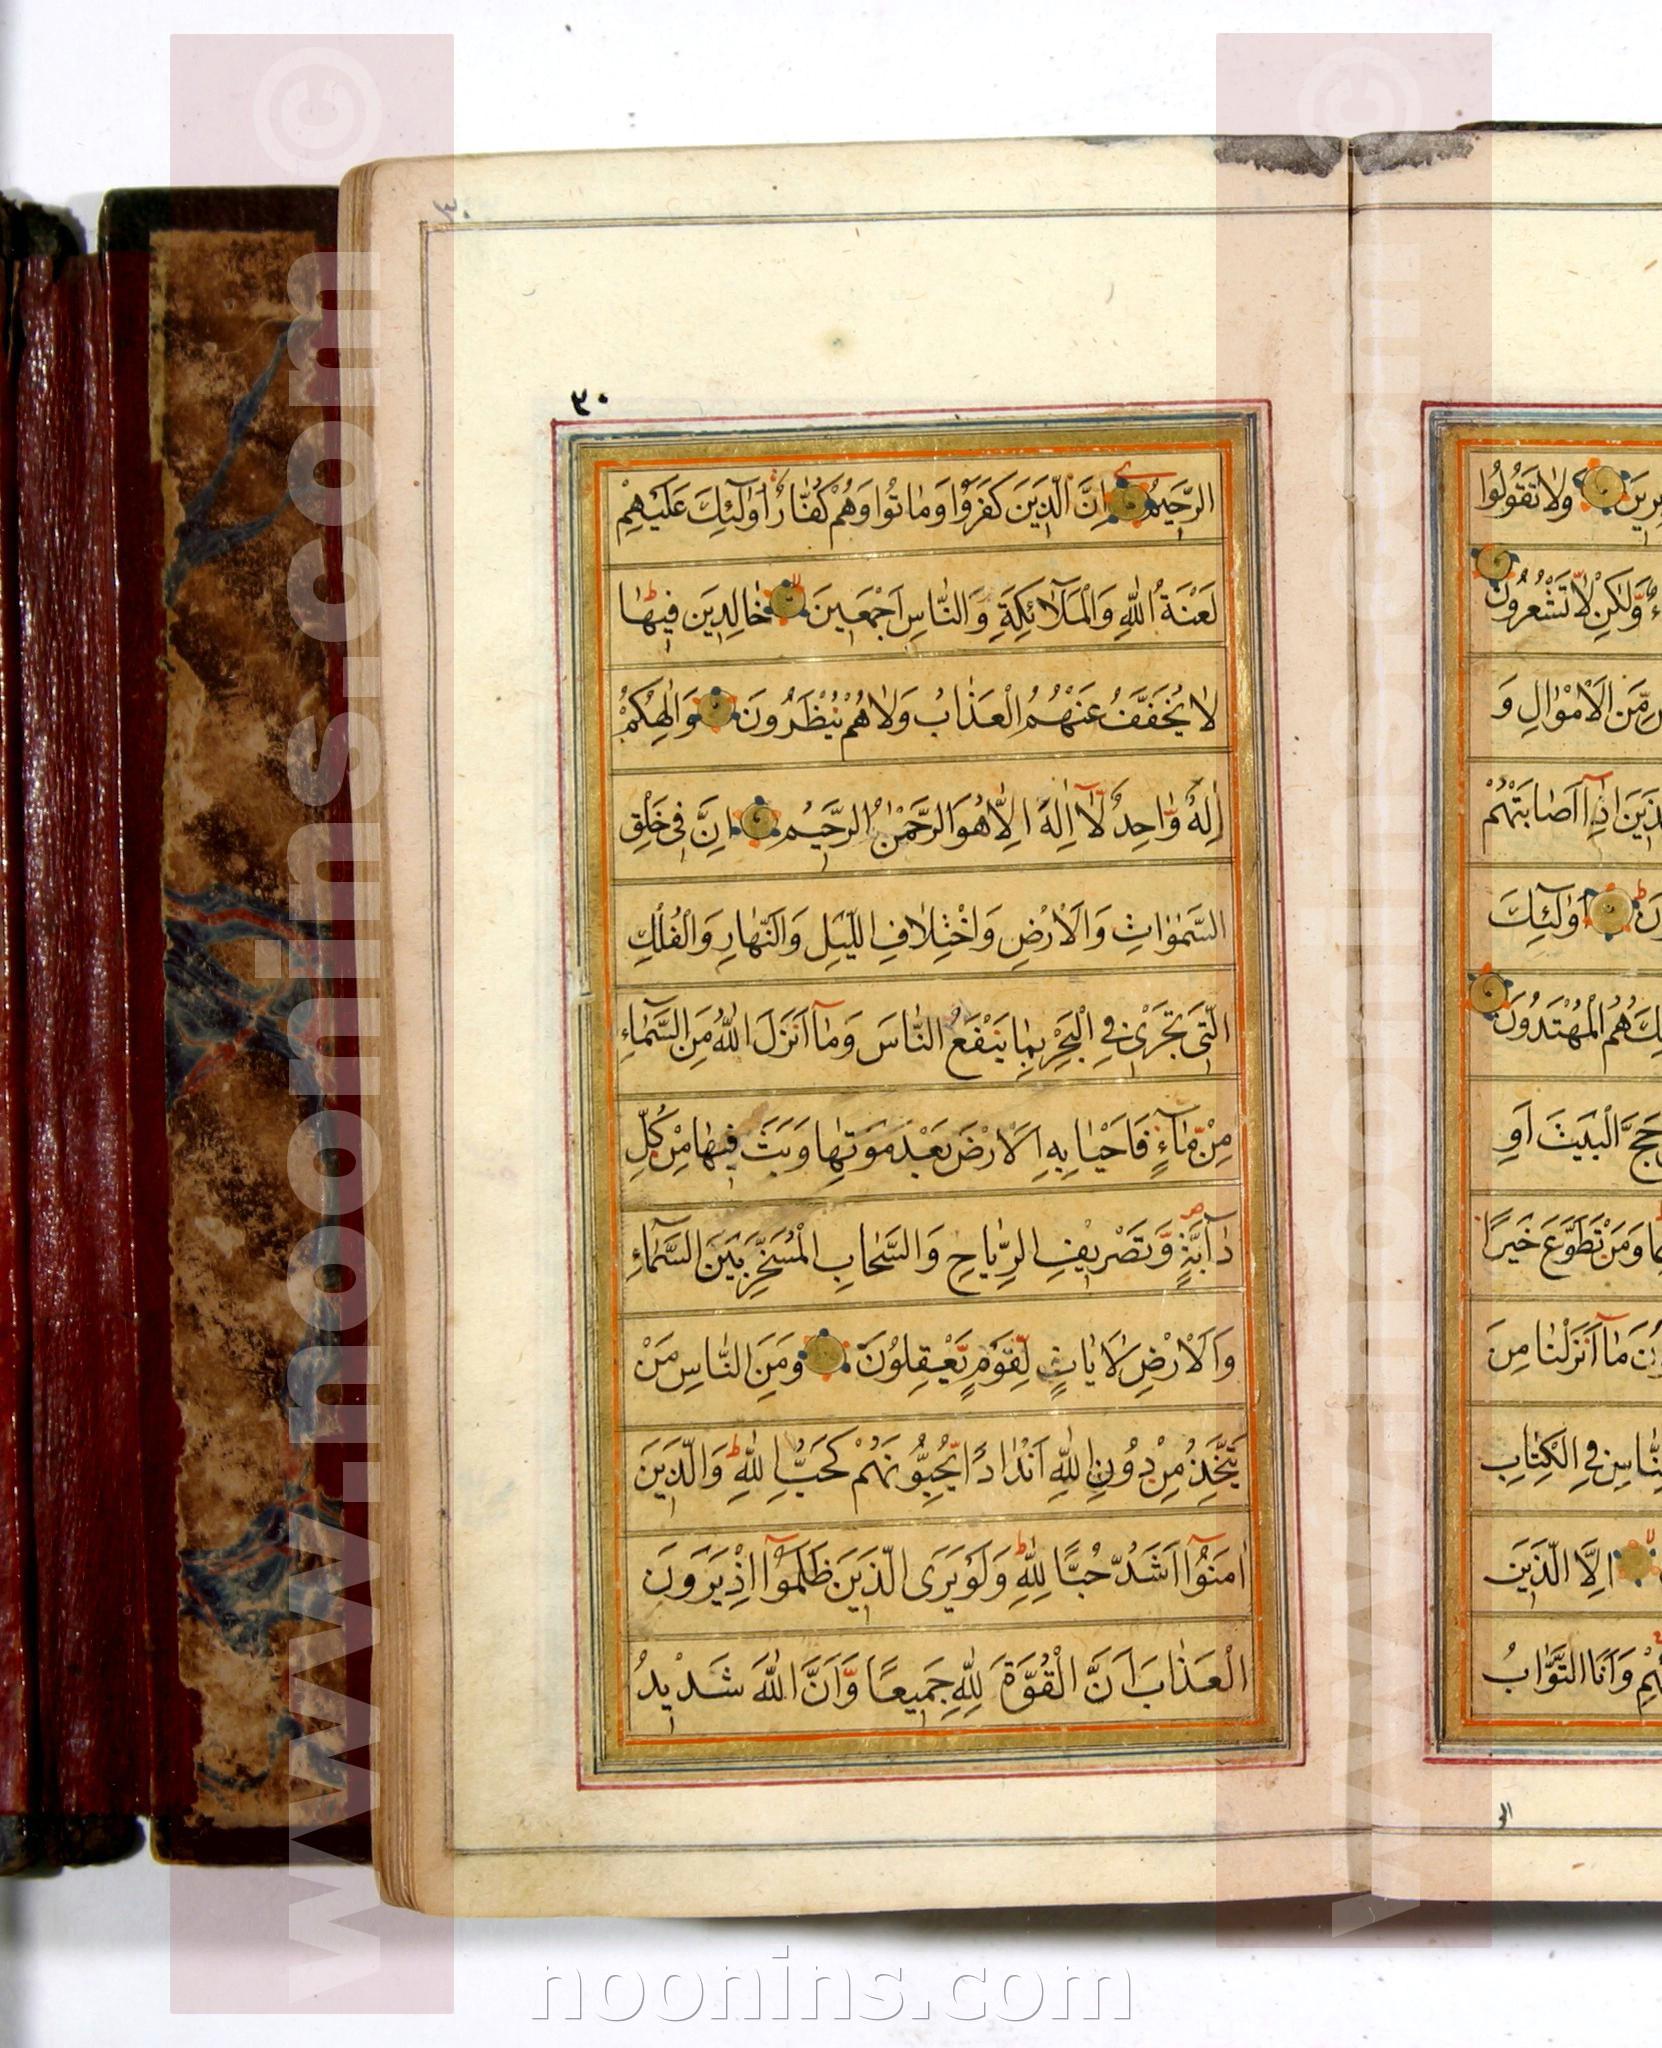 ٣٠
٣٠
الرَّحيمُ اِنَّ الَّذينَ كَفَرُوا وَماتُوا وَهُمْ كُفّارٌ اُولٰٓئِكَ عَلَيْهِمْ
لَعْنَةُ اللّٰهِ وَالْمَلآئِكَةِ وَالنّاسِ اَجْمَعينَ خالِدينَ فيها
لا يُخَفَّفُ عَنْهُمُ الْعَذابُ وَلا هُمْ يُنْظَرُونَ وَاِلٰهُكُمْ
اِلٰهٌ وّاحِدٌ لآ اِلٰهَ اِلّا هُوَ الرَّحْمٰنُ الرَّحيمُ اِنَّ في خَلْقِ
السَّمٰواتِ وَالْاَرْضِ وَاخْتِلافِ اللَّيْلِ وَالنَّهارِ وَالْفُلْكِ
الَّتي تَجْري فِي الْبَحْرِ بِما يَنْفَعُ النّاسَ وَمآ اَنْزَلَ اللّٰهُ مِنَ السَّمآءِ
مِنْ مآءٍ فَاَحْيا بِهِ الْاَرْضَ بَعْدَ مَوْتِها وَبَثَّ فيها مِنْ كُلِّ
دآبَّةٍ وَتَصْريفِ الرِّياحِ وَالسَّحابِ الْمُسَخَّرِ بَيْنَ السَّمآءِ
وَالْاَرْضِ لَاٰياتٍ لِقَوْمٍ يَعْقِلُونَ وَمِنَ النّاسِ مَنْ
يَتَّخِذُ مِنْ دُونِ اللّٰهِ اَنْدادًا يُحِبُّونَهُمْ كَحُبِّ اللّٰهِ وَالَّذينَ
اٰمَنُوٓا اَشَدُّ حُبًّا لِلّٰهِ وَلَوْ يَرَى الَّذينَ ظَلَمُوٓا اِذْ يَرَوْنَ
الْعَذابَ اَنَّ الْقُوَّةَ لِلّٰهِ جَميعًا وَّاَنَّ اللّٰهَ شَديدُ
وَلا تَقُولُوا
وَّلٰكِنْ لا تَشْعُرُونَ
مِنَ الْاَمْوالِ وَ
اِذآ اَصابَتْهُمْ
اُولٰٓئِكَ
هُمُ الْمُهْتَدُونَ
حَجَّ الْبَيْتَ اَوِ
وَمَنْ تَطَوَّعَ خَيْرًا
مآ اَنْزَلْنا مِنَ
فِي الْكِتابِ
اِلَّا الَّذينَ
وَاَنَا التَّوّابُ
www.noonins.com ©
www.noonins.com ©
noonins.com